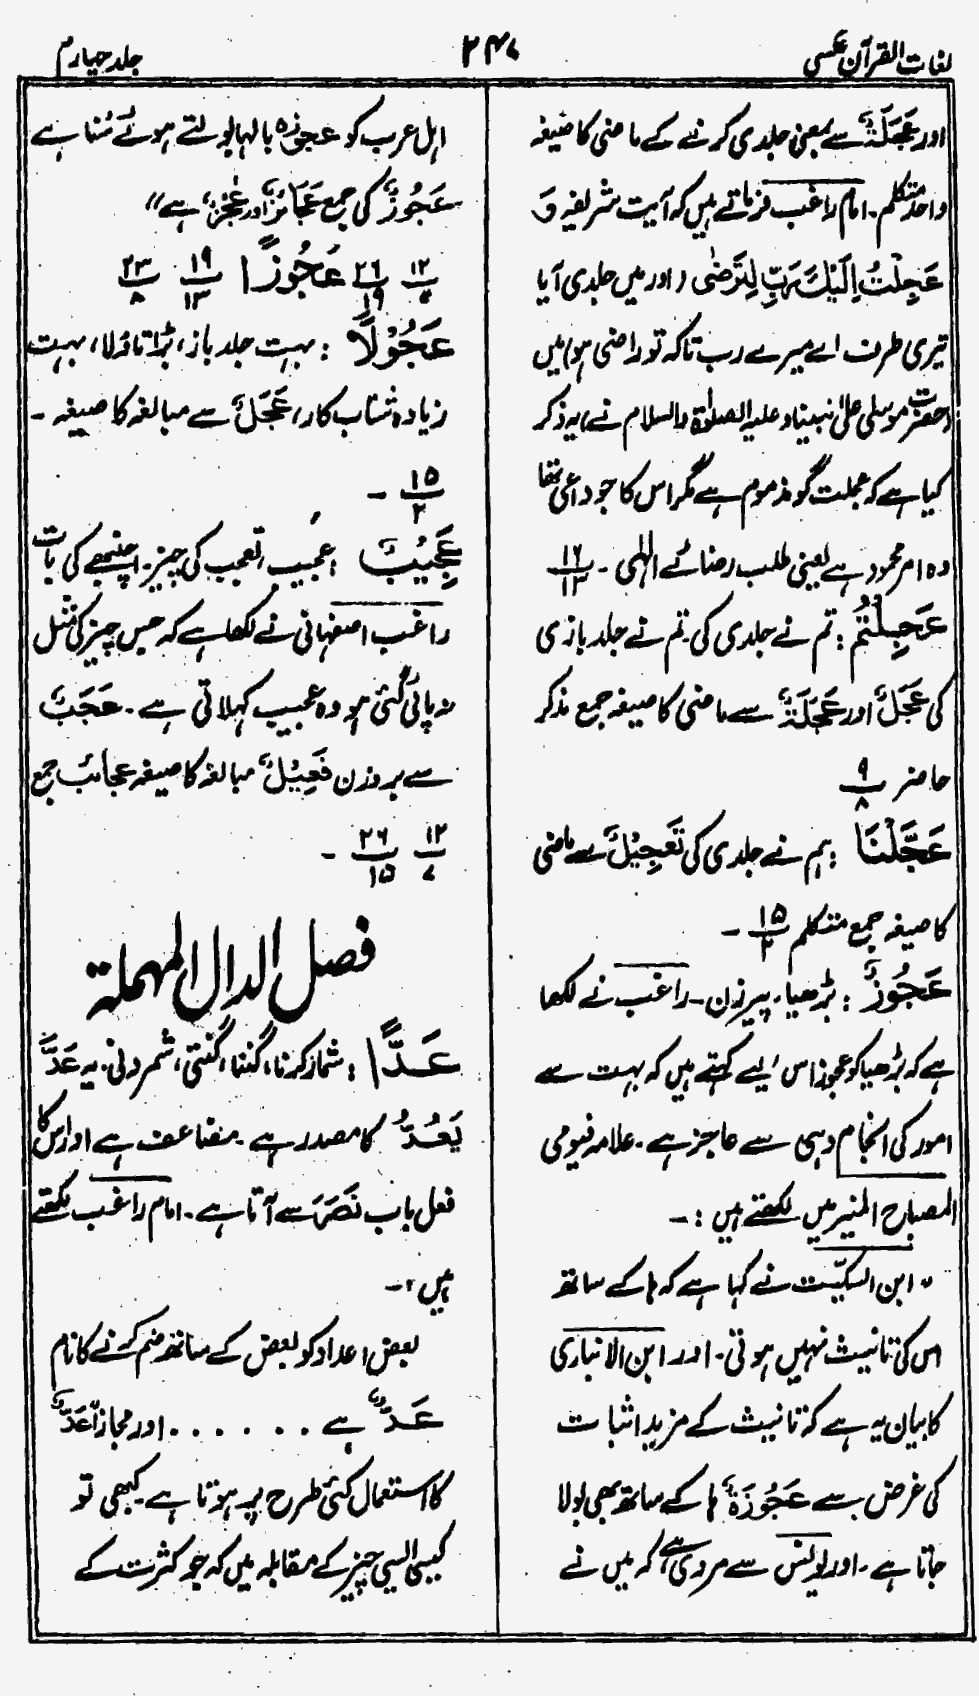 لغات القرآن عکسی
۲۴۷
جلد چہارم
اور عَجَلَةٌ سے بمعنی جلدی کرنے کے ماضی کا صیغہ
واحد متکلم۔ امام راغب فرماتے ہیں کہ آیت شریفہ وَ
عَجِلْتُ اِلَيْكَ رَبِّ لِتَرْضٰى (اور میں جلدی آیا
تیری طرف اے میرے رب تاکہ تو راضی ہو) میں
(حضرت موسٰی علی نبینا و علیہ الصلوٰۃ والسلام نے) یہ ذکر
کیا ہے کہ عجلت گو مذموم ہے مگر اس کا جو داعی تھا
وہ امر محمود ہے یعنی طلب رضائے الٰہی ۔ ۱۶/۱۳
عَجِلْتُمْ : تم نے جلدی کی۔ تم نے جلد بازی
کی عَجَلٌ اور عَجَلَةٌ سے ماضی کا صیغہ جمع مذکر
حاضر ۹/۸
عَجَّلْنَا : ہم نے جلدی کی تَعْجِيْلٌ سے ماضی
کا صیغہ جمع متکلم ۱۵/۲ ۔
عَجُوْزٌ : بڑھیا، پیرزن ۔ راغب نے لکھا
ہے کہ بڑھیا کو عجوز اس لیے کہتے ہیں کہ بہت سے
امور کی انجام دہی سے عاجز ہے ۔ علامہ فیومی
المصباح المنیر میں لکھتے ہیں :۔
" ابن السکّیت نے کہا ہے کہ ہا کے ساتھ
اس کی تانیث نہیں ہوتی۔ اور ابن الانباری
کا بیان یہ ہے کہ تانیث کے مزید اثبات
کی غرض سے عَجُوْزَةٌ ہا کے ساتھ بھی بولا
جاتا ہے ۔ اور یونس سے مروی ہے کہ میں نے
اہل عرب کو عجوزہ بالہا بولتے ہوئے سُنا ہے
عَجُوْزٌ کی جمع عَجَائِزٌ اور عُجُزٌ ہے"
۱۲/۷ ۲۶/۱۹ عَجُوْزًا ۱۹/۱۳ ۲۳/۸
عَجُوْلًا : بہت جلد باز، بڑا تاؤلا، بہت
زیادہ شتاب کار، عَجَلٌ سے مبالغہ کا صیغہ ۔
۱۵/۲ ۔
عَجِيْبٌ : عجیب، تعجب کی چیز۔ اچنبھے کی بات
راغب اصفہانی نے لکھا ہے کہ جس چیز کی مثل
نہ پائی گئی ہو وہ عجیب کہلاتی ہے ۔ عَجَبٌ
سے بروزن فَعِيْلٌ مبالغہ کا صیغہ عجائب جمع
۱۲/۷ ۲۶/۱۵ ۔
فصل الدال المہملة
عَدًّا : شمار کرنا، گننا، گنتی، شمردنی۔ یہ عَدَّ
يَعُدُّ کا مصدر ہے ۔ مضاعف ہے اور اس کا
فعل باب نَصَرَ سے آتا ہے ۔ امام راغب لکھتے
ہیں :۔
بعض اعداد کو بعض کے ساتھ ضم کرنے کا نام
عَدٌّ ہے . . . . . . اور مجازاً عَدٌّ
کا استعمال کئی طرح پر ہوتا ہے۔ کبھی تو
کسی ایسی چیز کے مقابلہ میں کہ جو کثرت کے